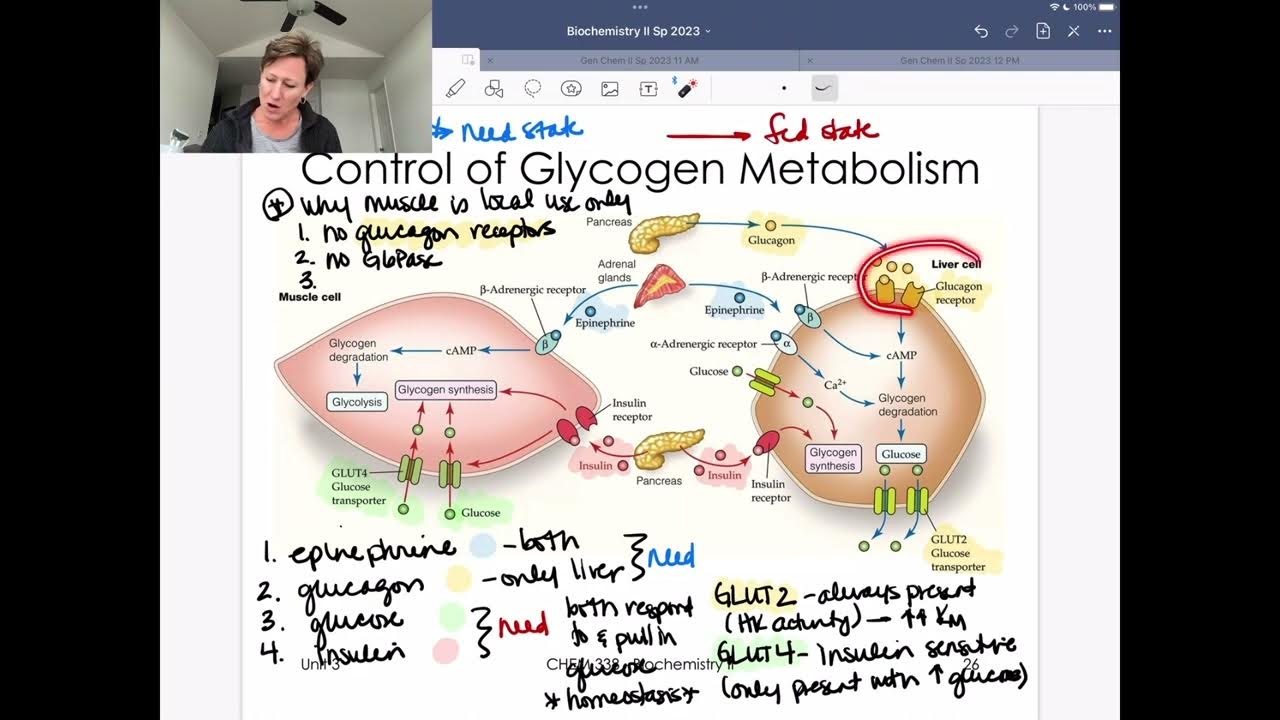 100%
Biochemistry II Sp 2023
Gen Chem II Sp 2023 11 AM
Gen Chem II Sp 2023 12 PM
need state
fed state
Control of Glycogen Metabolism
* Why muscle is local use only
1. no glucagon receptors
2. no G6Pase
3.
Pancreas
Glucagon
Liver cell
Glucagon
receptor
Adrenal
glands
β-Adrenergic receptor
Epinephrine
Epinephrine
β-Adrenergic recept
β
α-Adrenergic receptor
α
Muscle cell
β
Glycogen
degradation
cAMP
Glycolysis
Glycogen synthesis
Insulin
receptor
Insulin
Pancreas
Insulin
Insulin
receptor
GLUT4
Glucose
transporter
Glucose
Glucose
cAMP
Ca2+
Glycogen
degradation
Glycogen
synthesis
Glucose
GLUT2
Glucose
transporter
1. epinephrine - both
2. glucagon - only liver
need
3. glucose
4. Insulin
need
both respond
to & pull in
glucose
*homeostasis*
GLUT2 - always present
(HK activity) → ↑↑ KM
GLUT4 - insulin sensitive
(only present with ↑ glucose)
Unit 3
CHEM 338 - Biochemistry II
26